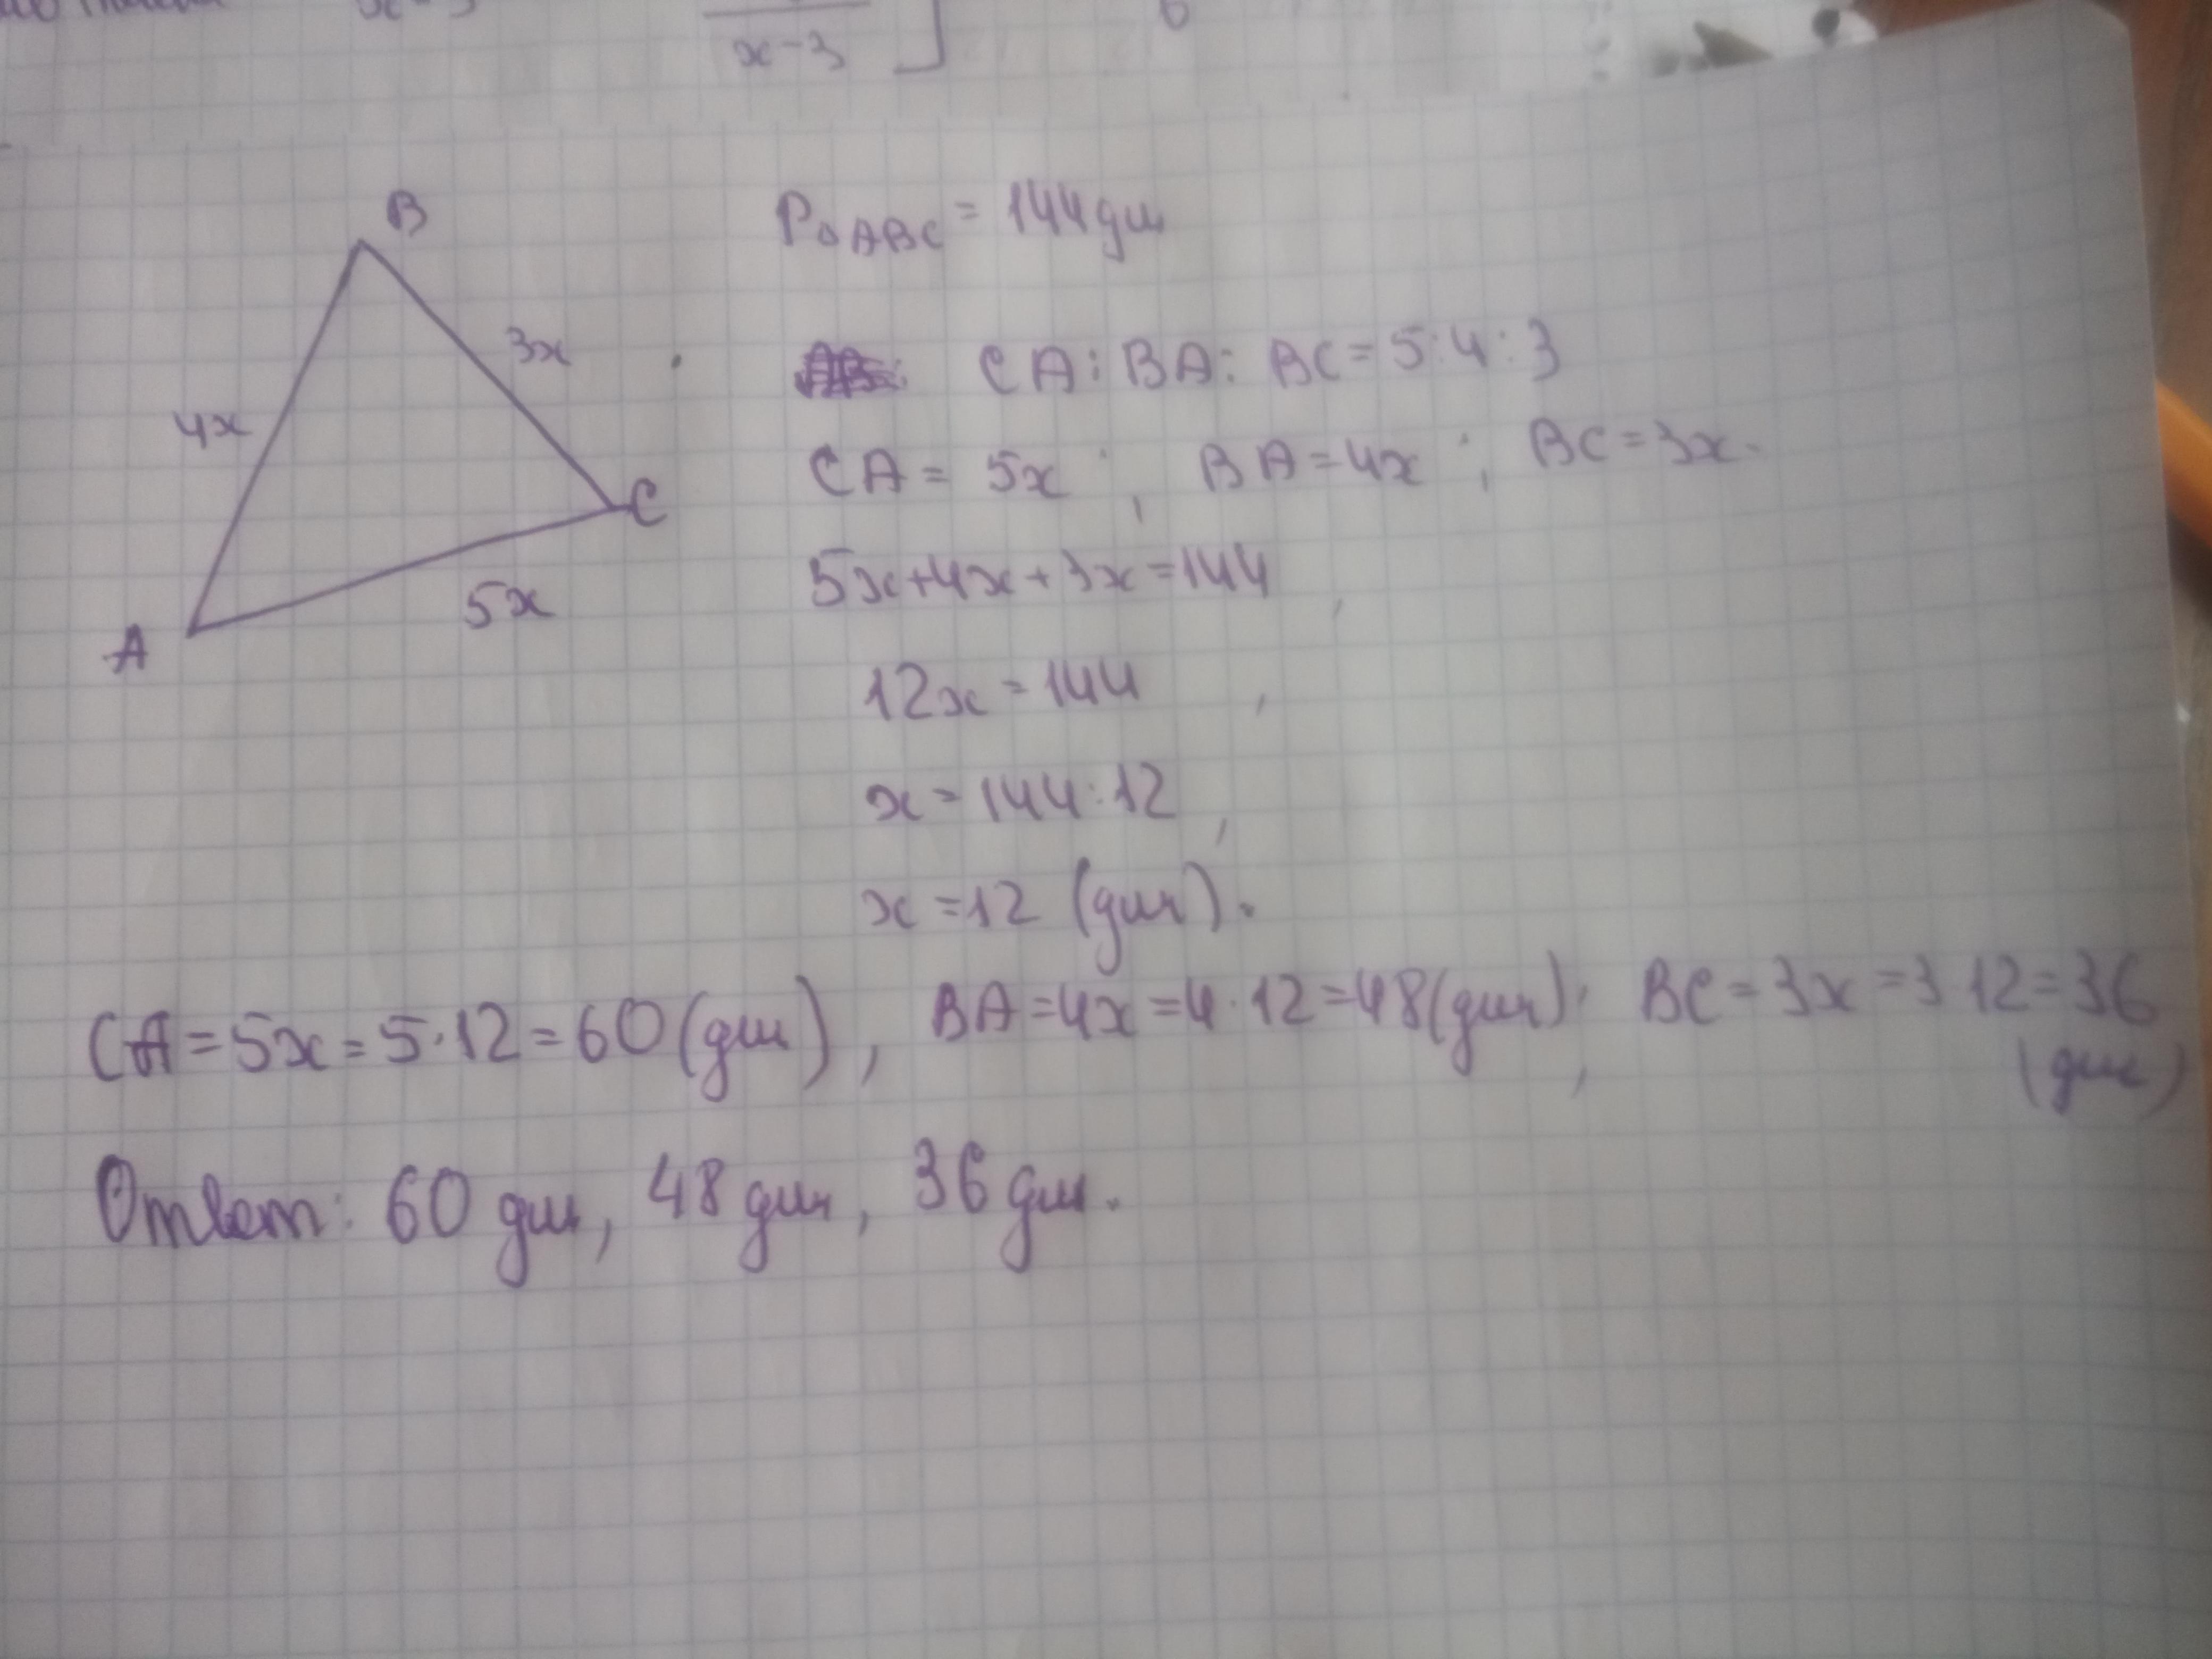 x-3
B
P△ABC = 144дм
3x
CA : BA : BC = 5 : 4 : 3
4x
CA = 5x ; BA = 4x ; BC = 3x.
C
5x+4x+3x=144,
5x
A
12x = 144,
x = 144:12,
x = 12 (дм).
CA = 5x = 5·12 = 60 (дм), BA = 4x = 4·12 = 48 (дм), BC = 3x = 3·12 = 36
(дм)
Ответ: 60 дм, 48 дм, 36 дм.